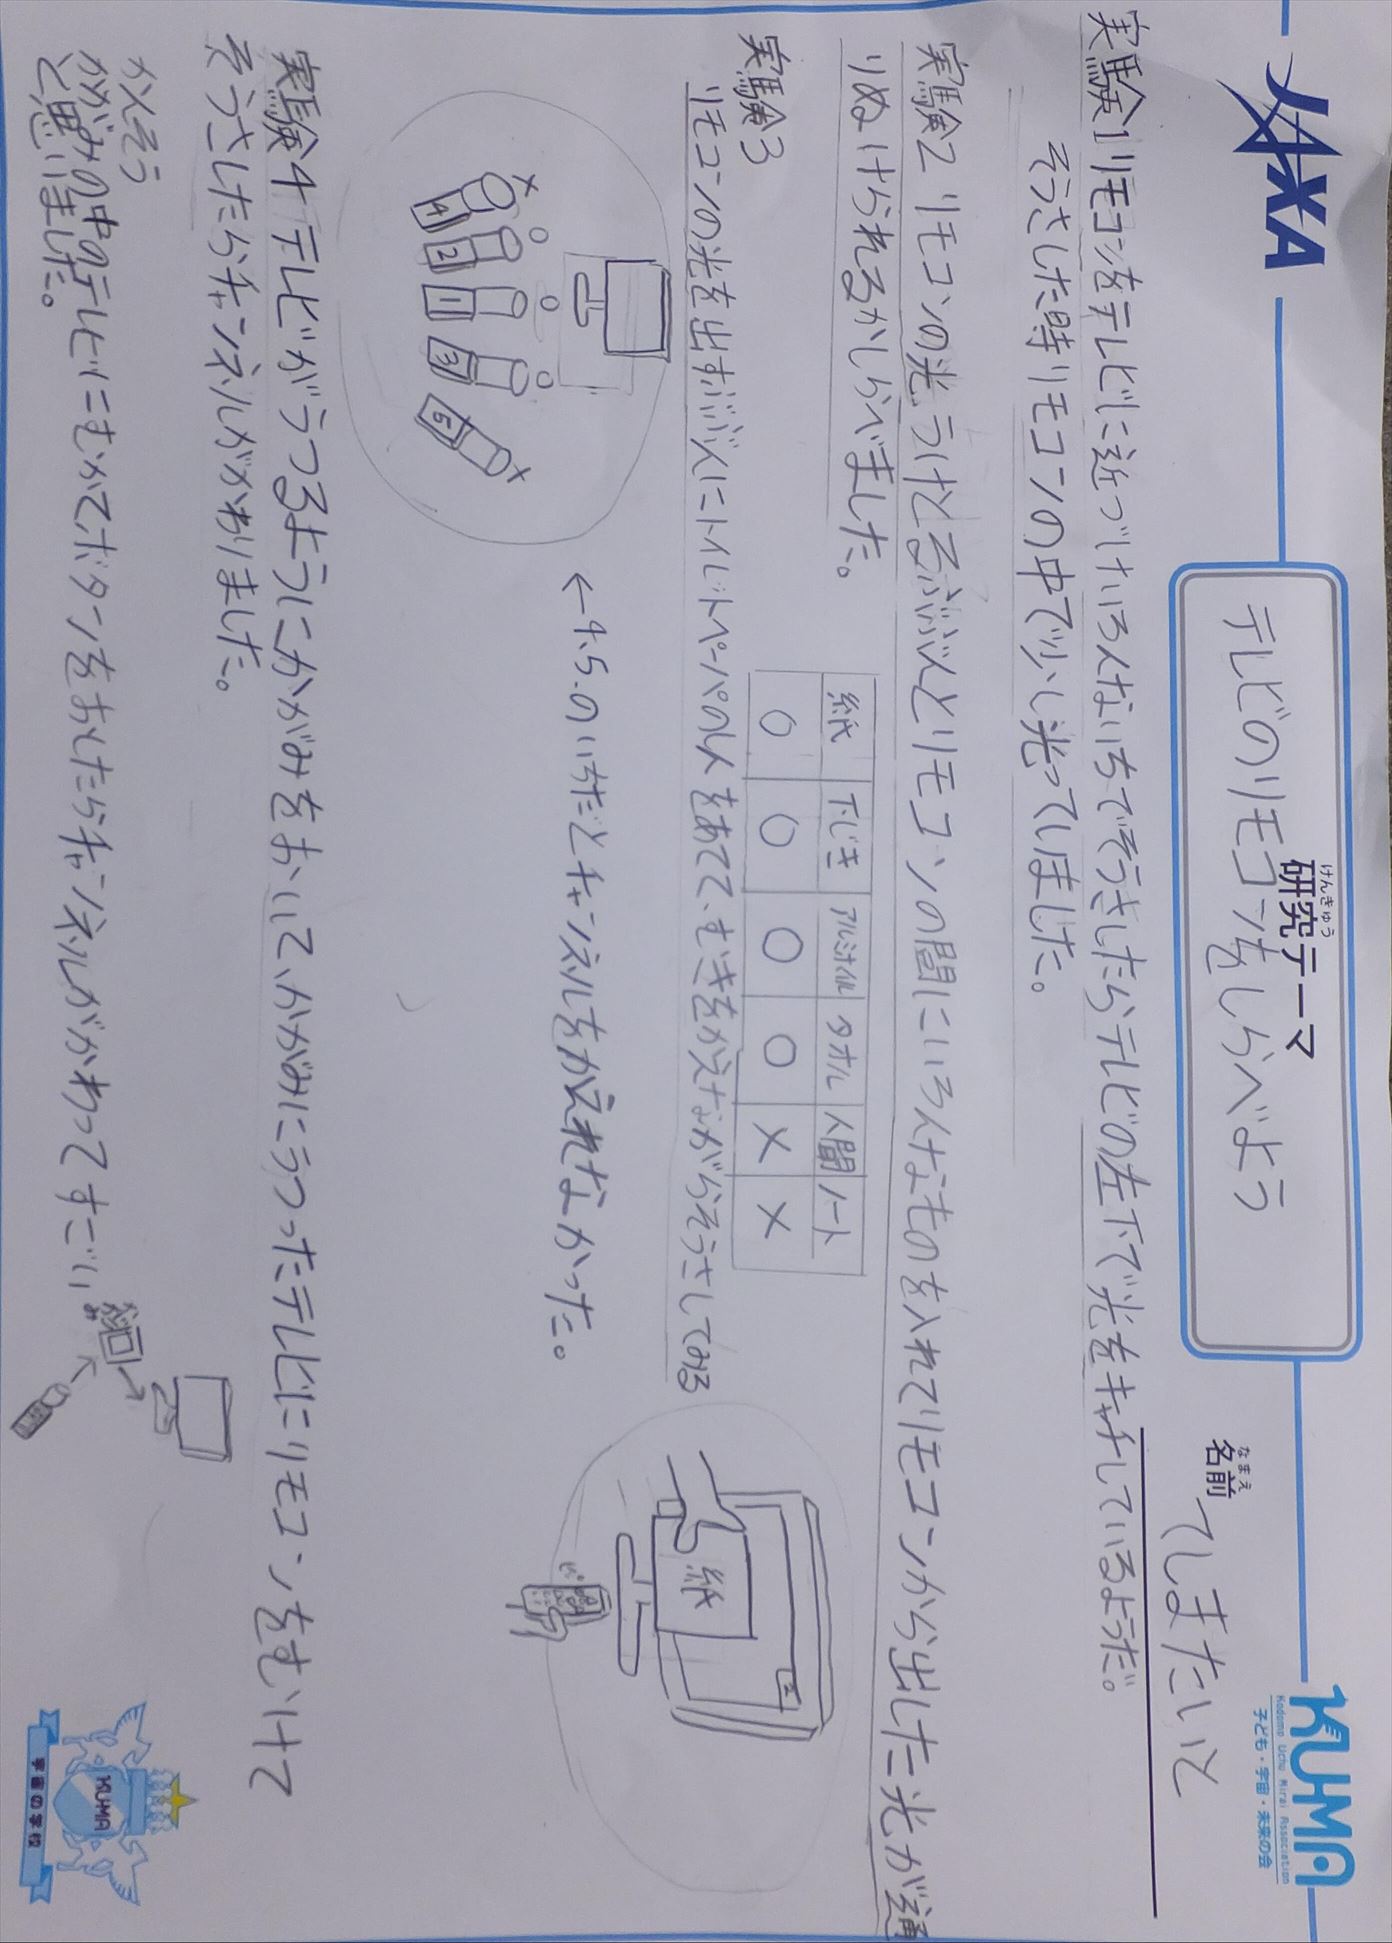 JAXA
研究テーマ
けんきゅう
テレビのリモコンをしらべよう
名前
なまえ
てしまたいと
KUMA
Kodomo Uchu Mirai Association
子ども・宇宙・未来の会
実験1リモコンをテレビに近づけいろんないちでそうさしたらテレビの左下で光をキャチしているよううだ。
そうさした時リモコンの中で少し光ってしました。
実験2 リモコンの光うけとるぶぶんとリモコンの間にいろんなものを入れてリモコンから出した光が通
りぬけられるかしらべました。
紙 下じき アルミホイル タオル 人間 ノート
○ ○ ○ ○ × ×
実験3
リモコンの光を出すぶぶんにトイレトペーパのしんをあてて、むきをかえながらそうさしてみる
× ○ ○ ○ ×
4 2 1 3 5
←4.5.のいちだとチャンネルをかえれなかった。
紙
2
実験4テレビがうつるようにかがみをおいて、かがみにうつったテレビにリモコンをむけて
そうさしたらチャンネルがかわりました。
かんそう
かがみの中のテレビにむかてボタンをおしたらチャンネルがかわってすごい
と思いました。
かがみ
KUMA
宇宙の学校